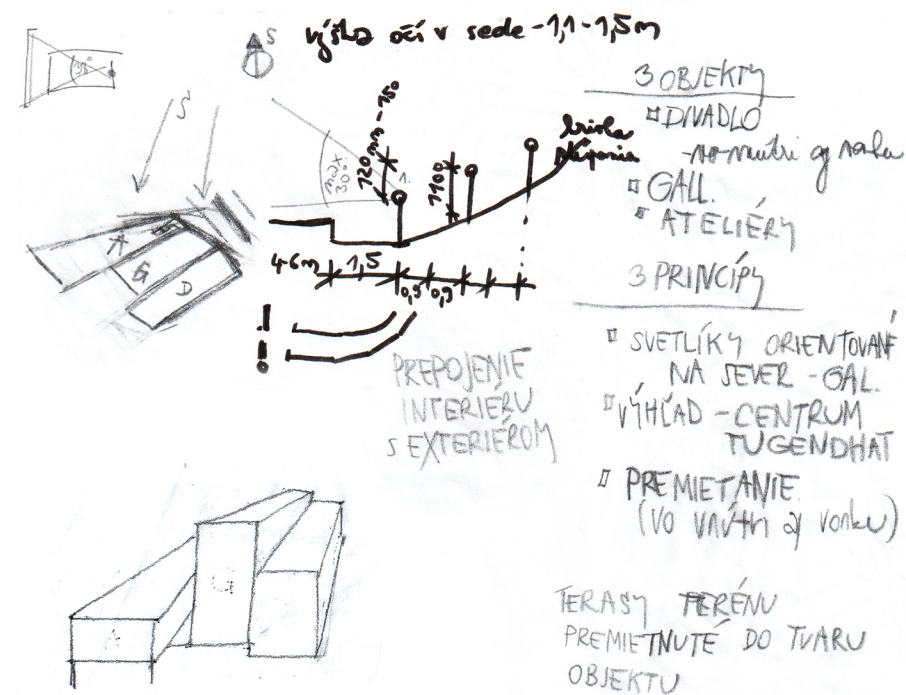 výška očí v sede - 1,1 - 1,5m
S
30°
S
max
30°
120mm - 150
1.
1100
krivka
stúpania
46m
1,5
0,9
0,9
!
!
A
G
D
PREPOJENIE
INTERIÉRU
S EXTERIÉROM
3 OBJEKTY
DIVADLO
- vo vnútri aj vonku
GALL.
ATELIÉRY
3 PRINCÍPY
SVETLÍKY ORIENTOVANÉ
NA SEVER - GAL.
VÝHĽAD - CENTRUM
TUGENDHAT
PREMIETANIE
(VO VNÚTRI aj vonku)
A
G
TERASY TERÉNU
PREMIETNUTÉ DO TVARU
OBJEKTU